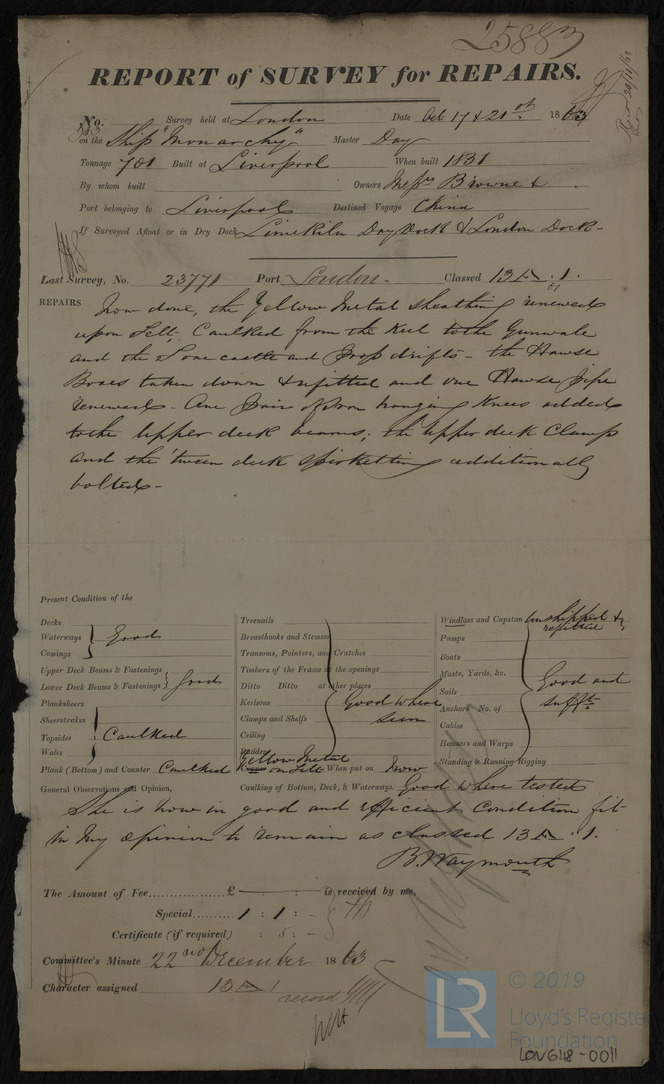 25883
REPORT of SURVEY for REPAIRS.
No. Survey held at London Date Oct 17 & 21st 1863
on the Ship "Monarchy" Master Day
Tonnage 701 Built at Liverpool When built 1831
By whom built Owners Messrs Browne &
Port belonging to Liverpool Destined Voyage China
If Surveyed Afloat or in Dry Dock Limekiln Dry Dock & London Dock -
Last Survey, No. 23771 Port London. Classed 13 A. 1.
REPAIRS Now done, the Yellow Metal sheathing renewed
upon Felt, Caulked from the Keel to the Gunwale
and the Forecastle and Poop drifts - the Hawse
Boxes taken down & refitted and one Hawse pipe
renewed - One pair of Iron hanging Knees added
to the Upper deck beams; the Upper deck Clamps
and the 'tween deck spirketting additionally
bolted -
Present Condition of the
Decks
Waterways Good
Comings
Upper Deck Beams & Fastenings
Lower Deck Beams & Fastenings Good
Planksheers
Sheerstrakes
Topsides Caulked
Wales
Plank (Bottom) and Counter Caulked
Treenails
Breasthooks and Stemson
Transoms, Pointers, and Crutches
Timbers of the Frame at the openings
Ditto Ditto at other places
Keelsons Good where
Clamps and Shelfs seen
Ceiling
Rudder
Yellow Metal
Copper on Felt When put on Now
Windlass and Capstan unshipped &
refitted
Pumps
Boats
Masts, Yards, &c. Good and
Sails
Anchors No. of sufft
Cables
Hausers and Warps
Standing & Running Rigging
General Observations and Opinion, Caulking of Bottom, Deck, & Waterways. Good where tested
She is now in good and efficient condition fit
in my opinion to remain as classed 13 A. 1.
B. Waymouth
The Amount of Fee............... £ : : is received by me,
Special......... 1 : 1 : -
Certificate (if required) : 5 : -
Committee's Minute 22nd December 1863 -
Character assigned 13 A 1
record
© 2019
LR
Lloyd's Register
Foundation
LON648-0011